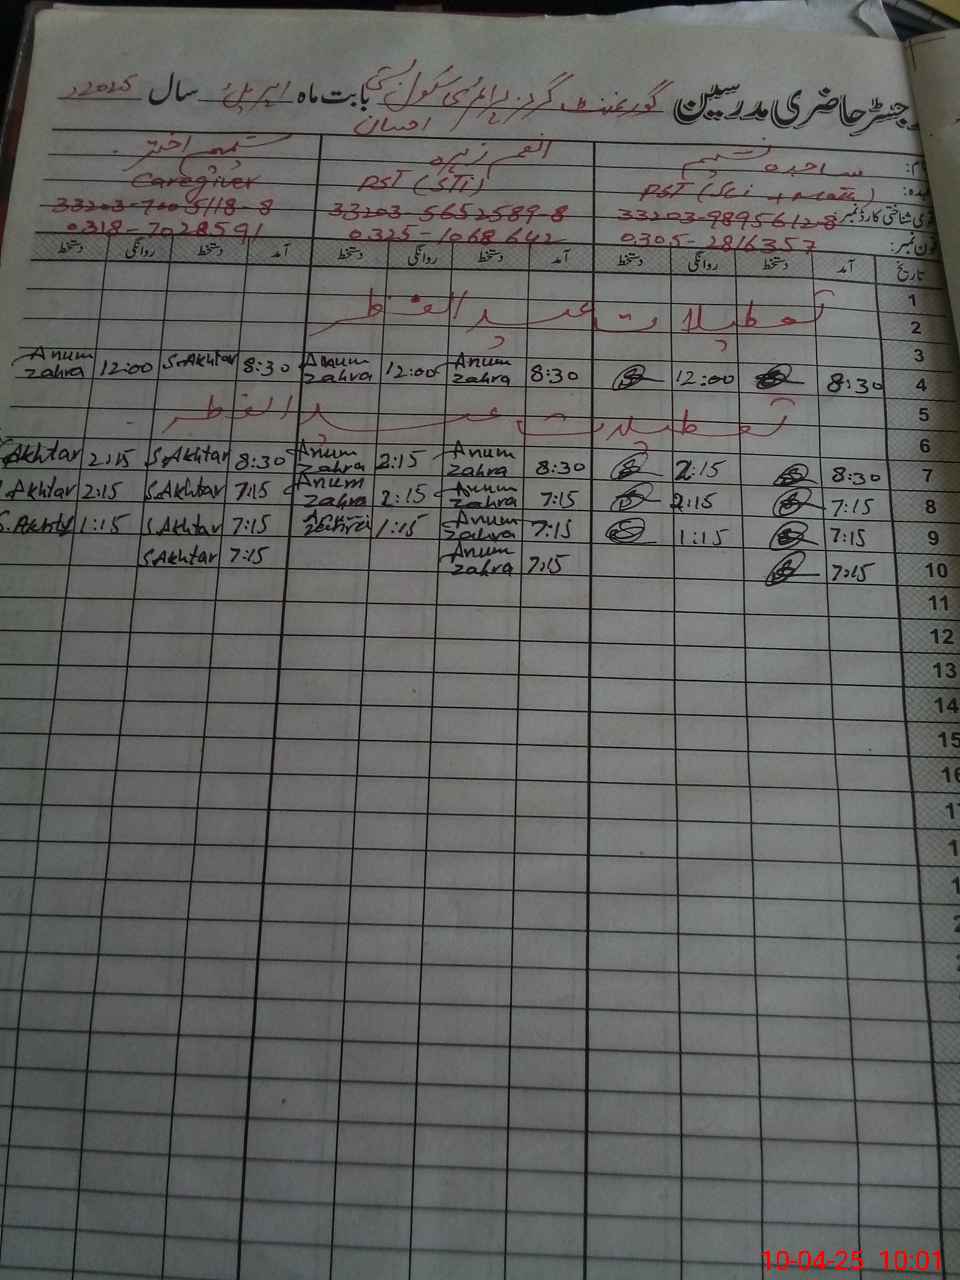 رجسٹر حاضری مدرسین گورنمنٹ گرلز پرائمری سکول بستی احسان بابت ماہ اپریل سال 2025ء
نام: ساجدہ نسیم انعم زہرہ شمیم اختر
عہدہ: PST (Sci + Math) PST (STI) Caregiver
قومی شناختی کارڈ نمبر 33203-9895612-8 33203-5652589-8 33203-7005118-8
فون نمبر: 0305-2816357 0325-1068642 0318-7028591
تاریخ آمد دستخط روانگی دستخط آمد دستخط روانگی دستخط آمد دستخط روانگی دستخط
1
2 تعطیلات عید الفطر
3
4 8:30 12:00 8:30 Anum Zahra 12:00 Anum Zahra 8:30 S.Akhtar 12:00 Anum Zahra
5 تعطیلات عید الفطر
6
7 8:30 2:15 8:30 Anum Zahra 2:15 Anum Zahra 8:30 S.Akhtar 2:15 S.Akhtar
8 7:15 2:15 7:15 Anum Zahra 2:15 Anum Zahra 7:15 S.Akhtar 2:15 S.Akhtar
9 7:15 1:15 7:15 Anum Zahra 1:15 Zahra 7:15 S.Akhtar 1:15 S.Akhtar
10 7:15 7:15 Anum Zahra 7:15 S.Akhtar
11
12
13
14
15
16
10-04-25 10:01